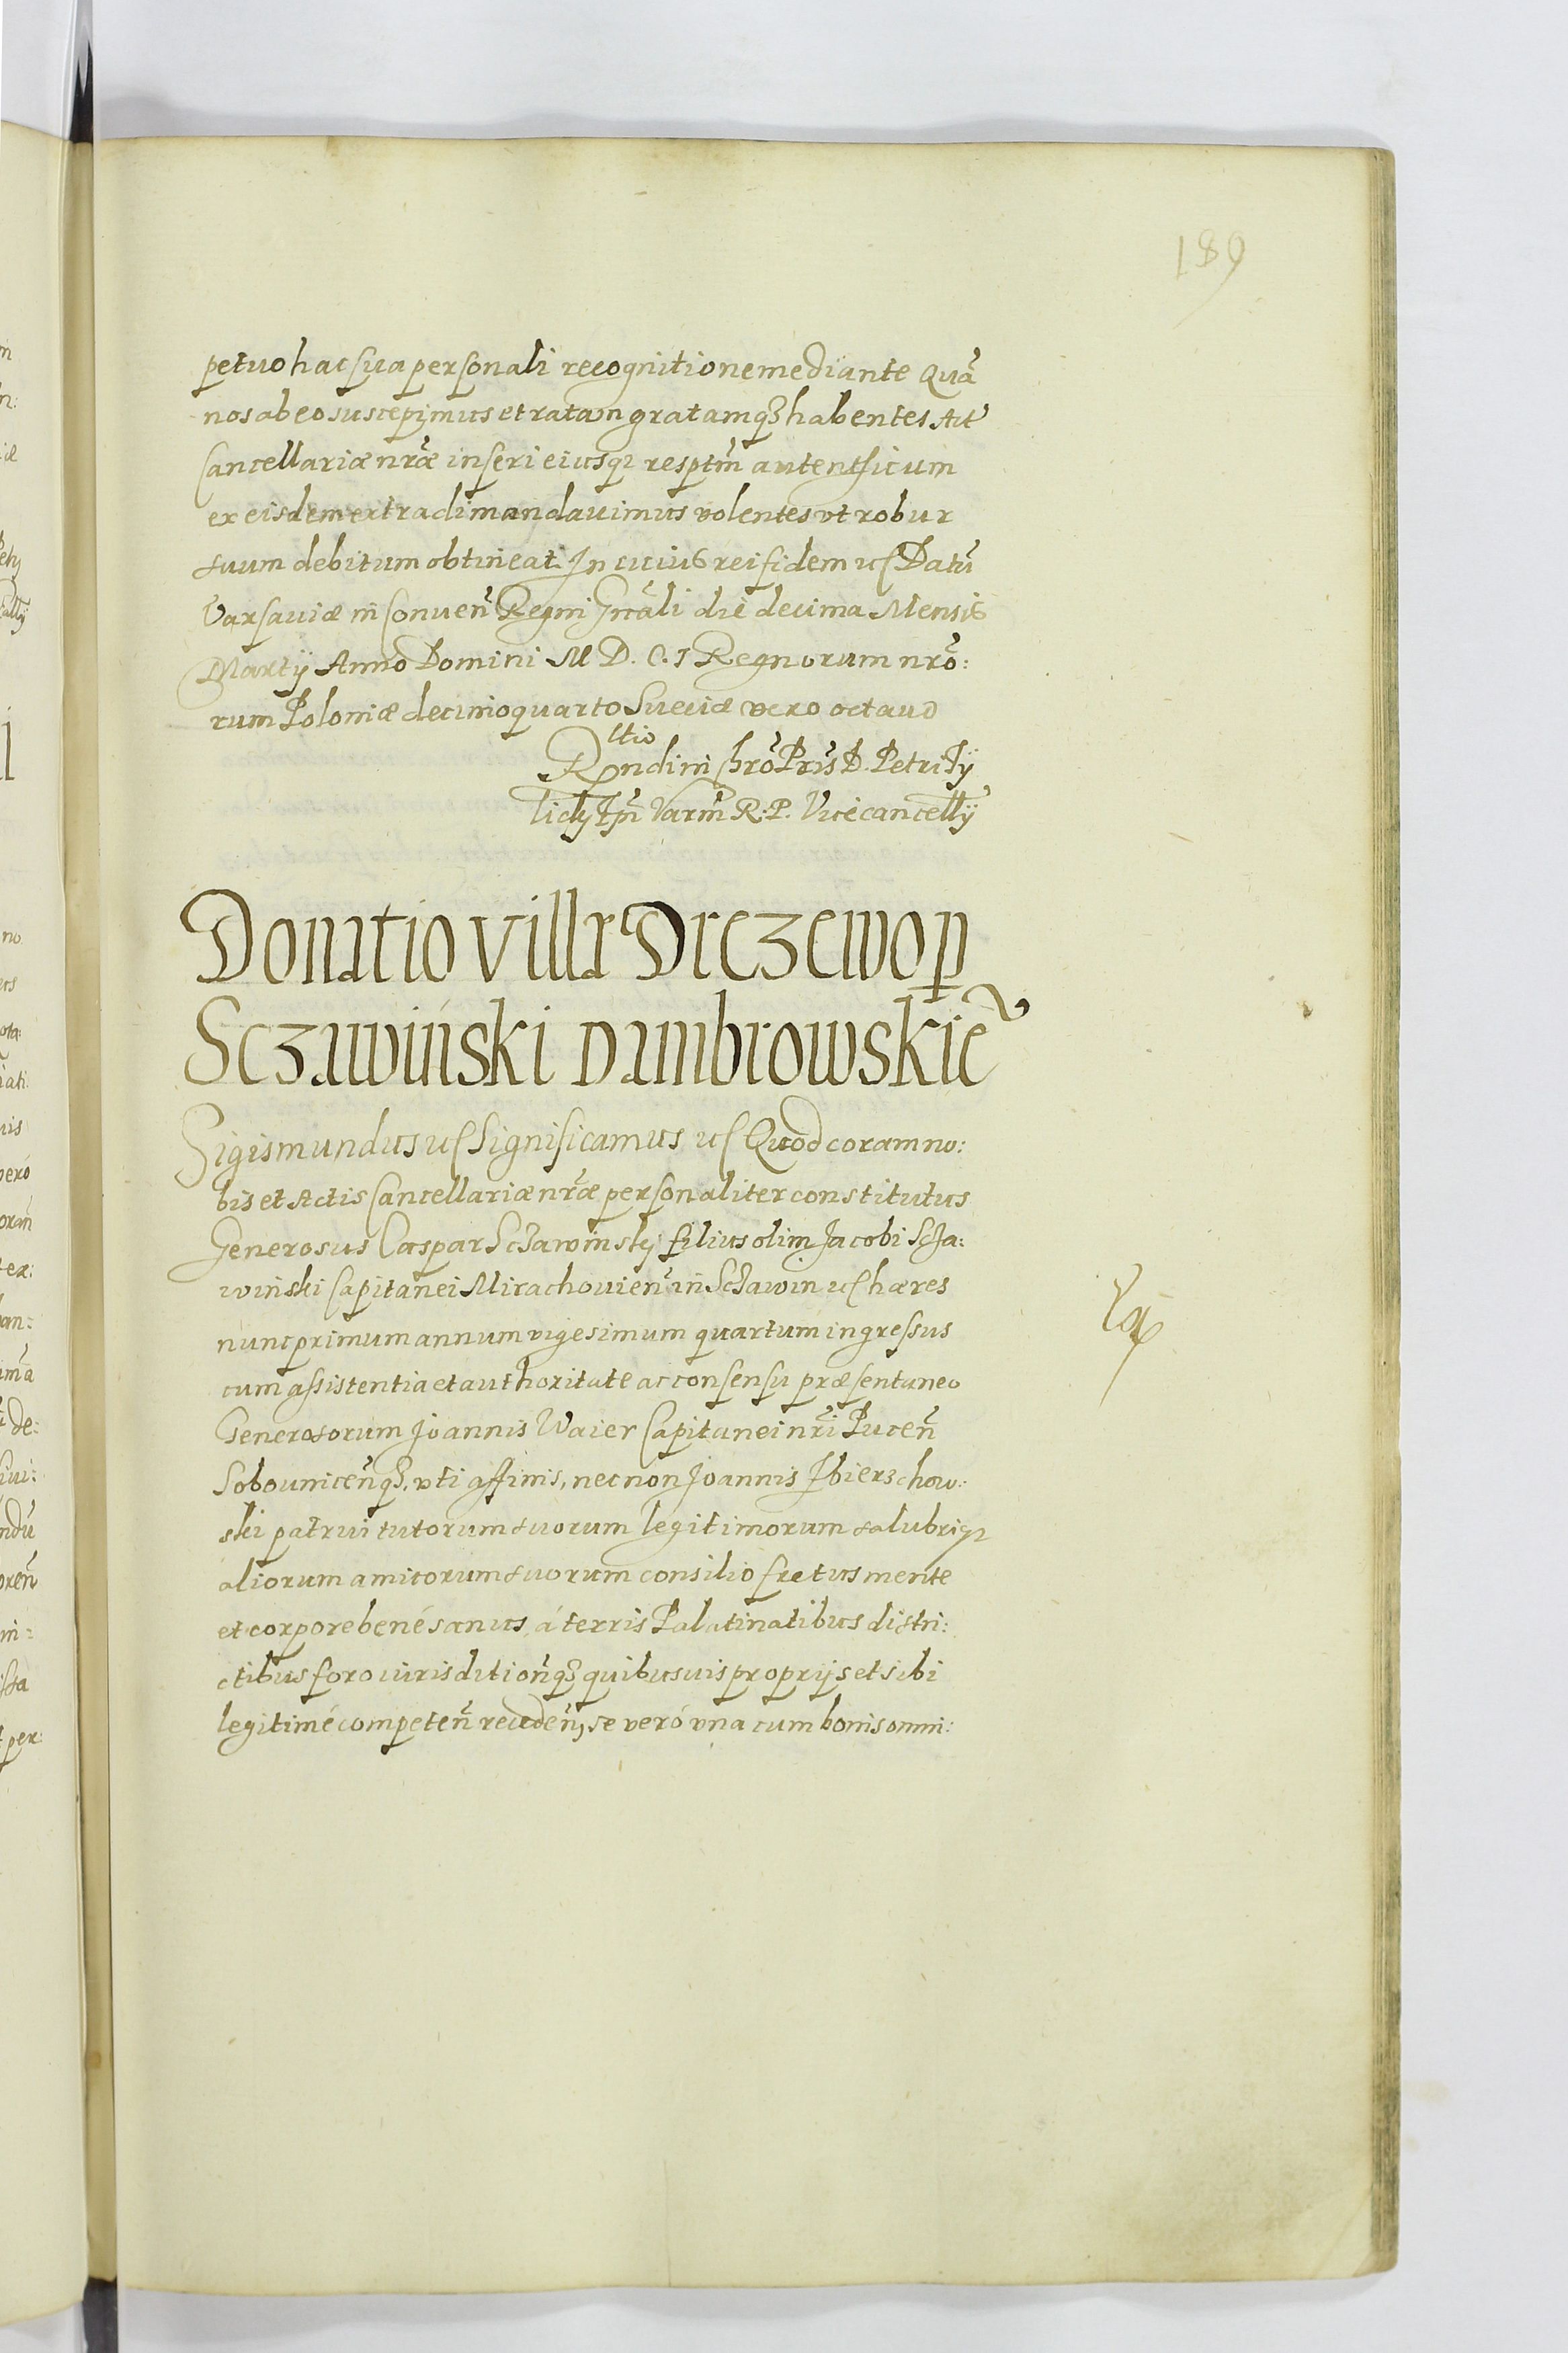 189
petuo hac sua personali recognitione mediante Quā
nos ab eo suscepimus et ratam gratamq₃ habentes Act
Cancellariæ nr̃æ inseri eiusq₃ resptm̃ autenthicum
ex eisdem extradi mandauimus volentes vt robur
suum debitum obtineat. In cuius rei fidem uc Datū
Varsauiæ in Conuen̄ Regni Gn̄ali die decima Mensis
Martÿ Anno Domini M D. C. I Regnorum nr̃o:
rum Poloniæ decimoquarto Sueciæ vero octauo
Rltio
Rñdim Chrō Pris D. Petri Ty
licky Epī Varm̄ R. P. Vicecancellÿ
Donatio villæ Drezewo p
Sczawiński Dambrowskiē
Sigismundus uc Significamus uc Quod coram no:
bis et Actis Cancellariæ nr̃æ personaliter constitutus
Generosus Caspar Sczawinsky filius olim Jacobi Scza:
winski Capitanei Mirachouien̄ in Sczawin uc hæres
nunc primum annum vigesimum quartum ingressus
cum assistentia et authoritate ac consensu præsentaneo
Generosorum Joannis Waier Capitanei nr̃i Pucen̄
Sobouicen̄q₃, vti affinis, nec non Joannis Zbierzchow:
ski patrui tutorum suorum legitimorum salubriq₃
aliorum amicorum suorum consilio fretus mente
et corpore bené sanus, á terris Palatinatibus distri:
ctibus foro iurisdition̄q₃ quibusuis proprijs et sibi
legitimé competen̄ receden̄, se veró vna cum bonis omni: